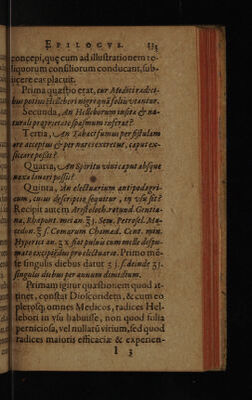 EPILOGVS. 133
concepi, quę cum ad illustrationem re-
liquorum consiliorum conducant, sub-
ijcere eas placuit.
Prima quæstio erat, cur Medici radici-
bus potius Hellebori nigri quā folijs vtantur.
Secunda, An Helleborum insita & na-
turali proprietate spasmum inferat?
Tertia, An Tabaci fumus per fistulam
ore acceptus & per nares extretus, caput ex-
siccare possit?
Quarta, An Spiritu vini caput absque
noxa lauari possit?
Quinta, An electuarium antipodagri-
cum, cuius descriptio sequitur, in vsu sit?
Recipit autem Aristoloch. rotund. Gentia-
na, Rhapont. mei an. ʒj. Sem. Petrosel. Ma-
cedon. ℥ s. Comarum Chamæd. Cent. min.
Hyperici an. ʒx fiat puluis cum melle despu-
mato excipiēdus pro electuario. Primo mē-
se singulis diebus datur ʒj. deinde ʒj.
singulis diebus per annum dimidium.
Primam igitur quæstionem quod at-
tinet, constat Dioscoridem, & cum eo
plerosq; omnes Medicos, radices Hel-
lebori in vsu habuisse, non quod folia
perniciosa, vel nullarū virium, sed quod
radices maioris efficaciæ & experien-
I 3